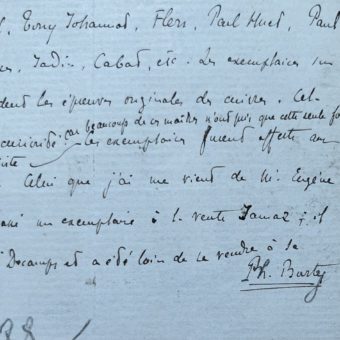 Tony Johannot, Flers, Paul Huet, Paul
Jadin, Cabat, etc. Les exemplaires sur
les épreuves originales des cuivres. Cet
car beaucoup de ces maîtres n'ont puis que cette seule fo
Les exemplaires furent offerts aux
Celui que j'ai me vient de M. Eugène
un exemplaire à la vente ; il
Decamps et a été loin de se vendre à sa
Ph. Burty